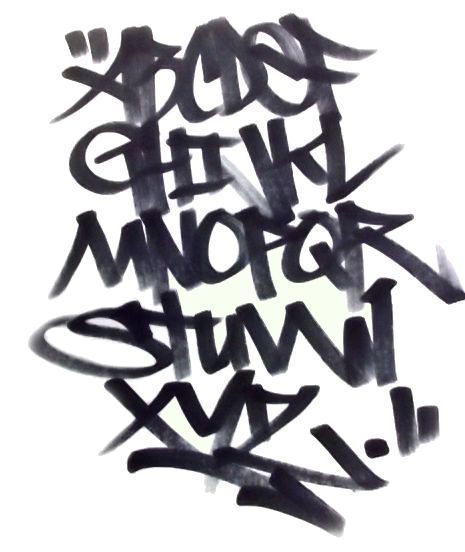 "ABCDEF
GHIJKL
MNOPQR
STUVW
XYZ."